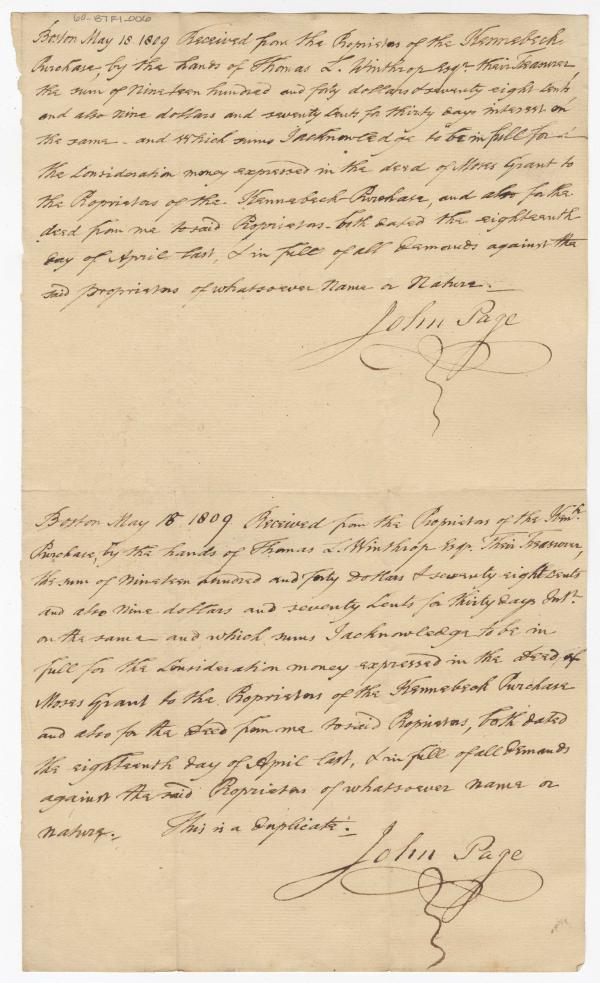 60-87F1-006
Boston May 18 1809 Received from the Proprietors of the Kennebeck
Purchase, by the hands of Thomas L. Winthrop Esqr. their Treasurer,
the sum of Nineteen hundred and forty dollars & seventy eight Cents
and also Nine dollars and seventy Cents for thirty days interest on
the same - and which sums I acknowledge to be in full for
the Consideration money expressed in the deed of Moses Grant to
the Proprietors of the Kennebeck Purchase, and also for the
deed from me to said Proprietors both dated the eighteenth
day of April last, & in full of all demands against the
said proprietors of whatsoever Name or Nature.
John Page
Boston May 18 1809 Received from the Proprietors of the Kenk.
Purchase, by the hands of Thomas L. Winthrop Esqr. Their Treasurer,
the sum of Nineteen hundred and forty dollars & seventy eight Cents
and also Nine dollars and seventy Cents for thirty days Intt.
on the same - and which sums I acknowledge to be in
full for the Consideration money expressed in the Deed of
Moses Grant to the Proprietors of the Kennebeck Purchase
and also for the deed from me to said Proprietors, both dated
the eighteenth day of April last, & in full of all demands
against the said Proprietors of whatsoever name or
nature. This is a duplicate.
John Page